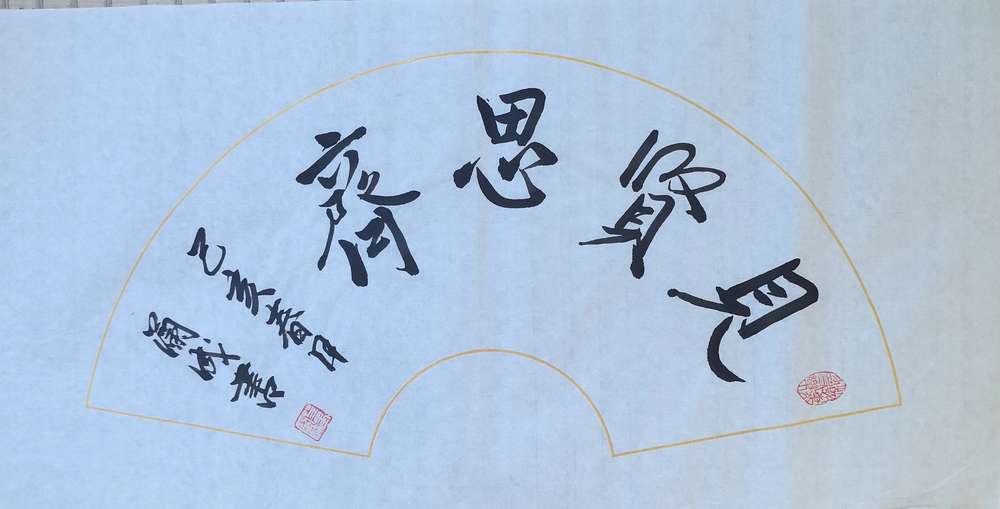 見賢思齊
己亥春月
成書